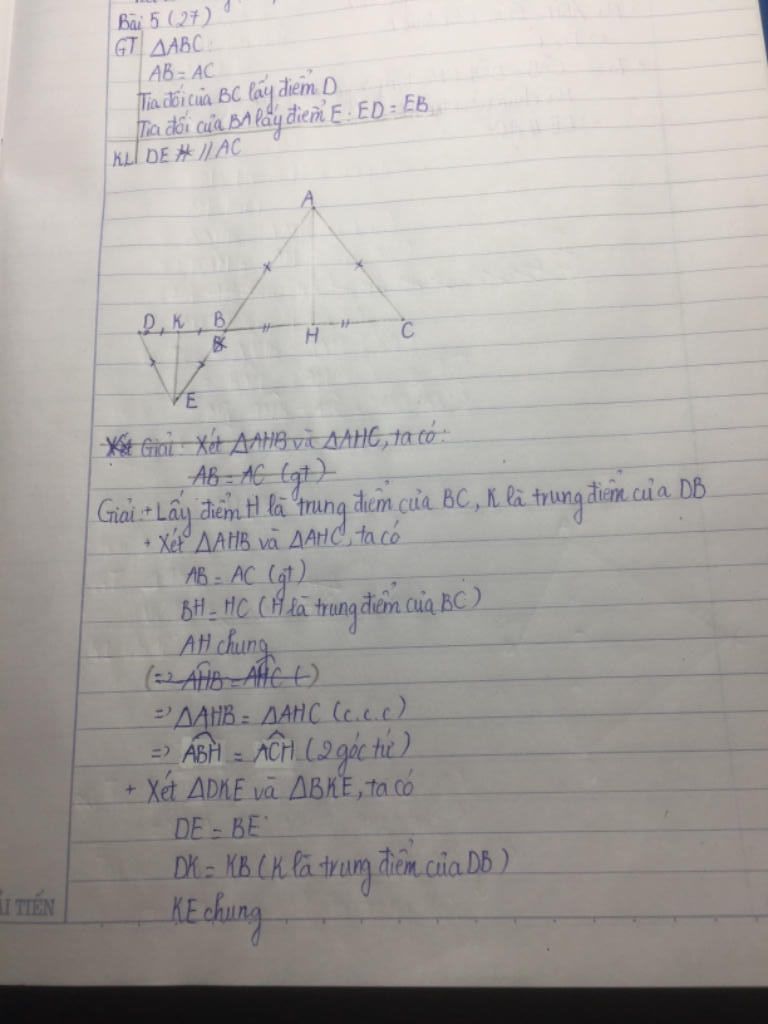 Bài 5 (27)
GT ΔABC:
AB = AC
Tia đối của BC lấy điểm D
Tia đối của BA lấy điểm E: ED = EB
KL DE // AC
A
D K B
H C
E
Giải: Xét ΔAHB và ΔAHC, ta có:
AB = AC (gt)
Giải: + Lấy điểm H là trung điểm của BC, K là trung điểm của DB
+ Xét ΔAHB và ΔAHC, ta có
AB = AC (gt)
BH = HC (H là trung điểm của BC)
AH chung
(=> AHB = AHC ( )
=> ΔAHB = ΔAHC (c.c.c)
=> ABH = ACH (2 góc tứ)
+ Xét ΔDKE và ΔBKE, ta có
DE = BE
DK = KB (K là trung điểm của DB)
KE chung
ẢI TIẾN